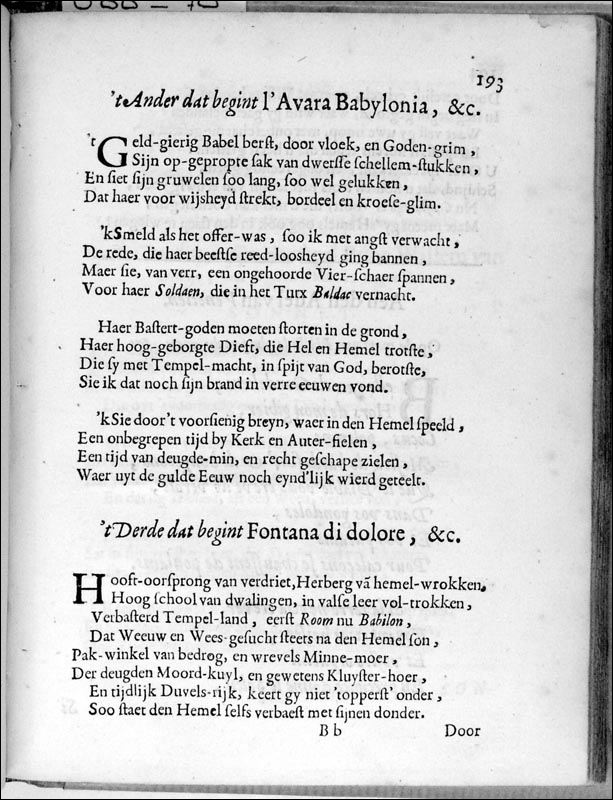 193
'tAnder dat begint l'Avara Babylonia, &c.
'tGeld-gierig Babel berſt, door vloek, en Goden-grim,
Sijn op-gepropte ſak van dwerſſe ſchellem-ſtukken,
En ſiet ſijn gruwelen ſoo lang, ſoo wel gelukken,
Dat haer voor wijsheyd ſtrekt, bordeel en kroeſe-glim.
'kSmeld als het offer-was, ſoo ik met angſt verwacht,
De rede, die haer beeſtſe reed-looſheyd ging bannen,
Maer ſie, van verr, een ongehoorde Vier-ſchaer ſpannen,
Voor haer Soldaen, die in het Turx Baldac vernacht.
Haer Baſtert-goden moeten ſtorten in de grond,
Haer hoog-geborgte Dieft, die Hel en Hemel trotſte,
Die ſy met Tempel-macht, in ſpijt van God, berotſte,
Sie ik dat noch ſijn brand in verre eeuwen vond.
'kSie door't voorſienig breyn, waer in den Hemel ſpeeld,
Een onbegrepen tijd by Kerk en Auter-fielen,
Een tijd van deugde-min, en recht geſchape zielen,
Waer uyt de gulde Eeuw noch eynd'lijk wierd geteelt.
'tDerde dat begint Fontana di dolore, &c.
Hooft-oorſprong van verdriet, Herberg vā hemel-wrokken,
Hoog ſchool van dwalingen, in valſe leer vol-trokken,
Verbaſterd Tempel-land, eerſt Room nu Babilon,
Dat Weeuw en Wees-geſucht ſteets na den Hemel ſon,
Pak-winkel van bedrog, en wrevels Minne-moer,
Der deugden Moord-kuyl, en gewetens Kluyſter-hoer,
En tijdlijk Duvels-rijk, keert gy niet 'topperſt' onder,
Soo ſtaet den Hemel ſelfs verbaeſt met ſijnen donder.
B b Door